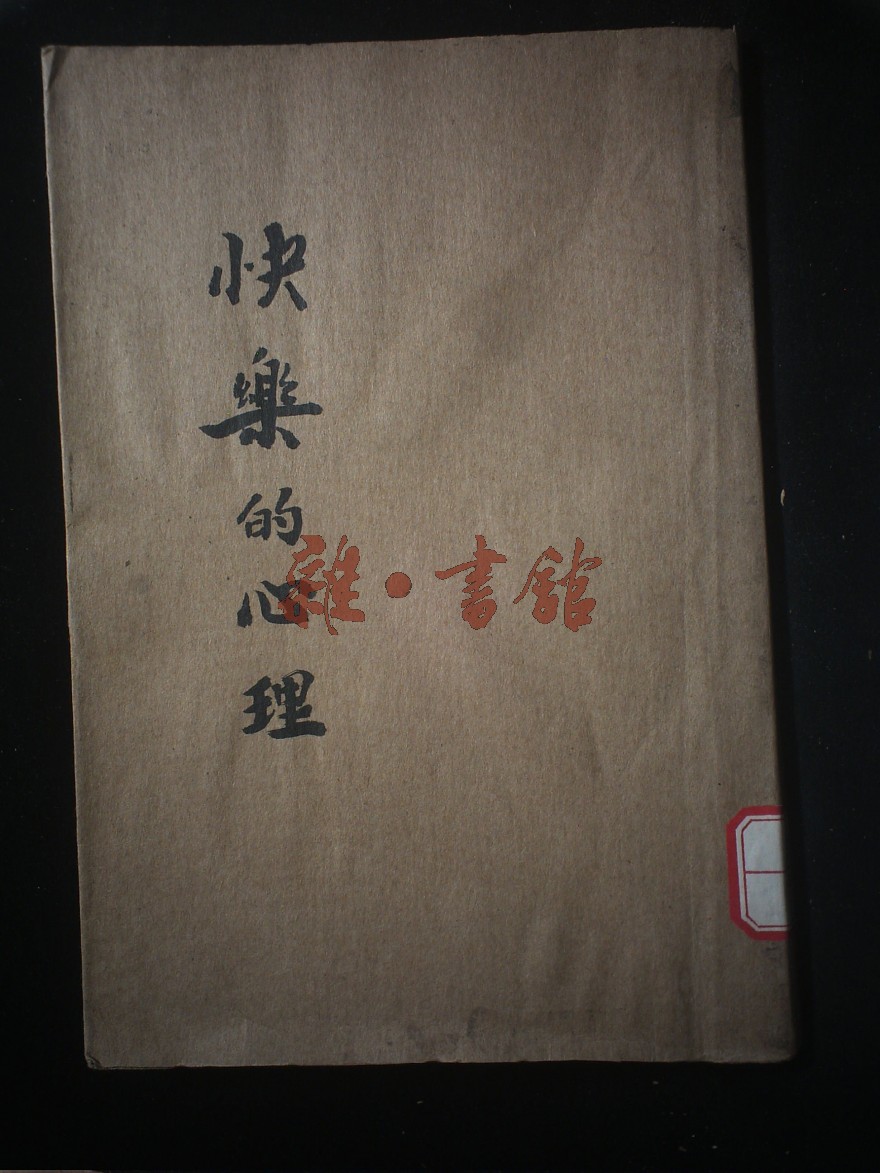 快樂的心理
雜·書館